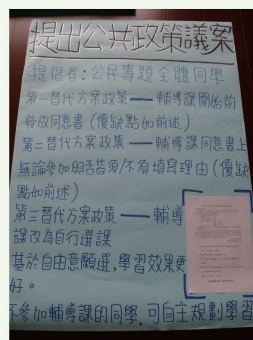 提出公共政策議案
提倡者：公民專題全體同學
第一替代方案政策——輔導課開始前
發放同意書（優缺點如前述）
第二替代方案政策——輔導課同意書上
無論參加與否皆須/不須填寫理由（優缺
點如前述）
第三替代方案政策——輔導
課改為自行選課
基於自由意願選，學習效果更
好。
不參加輔導課的同學，可自主規劃學習